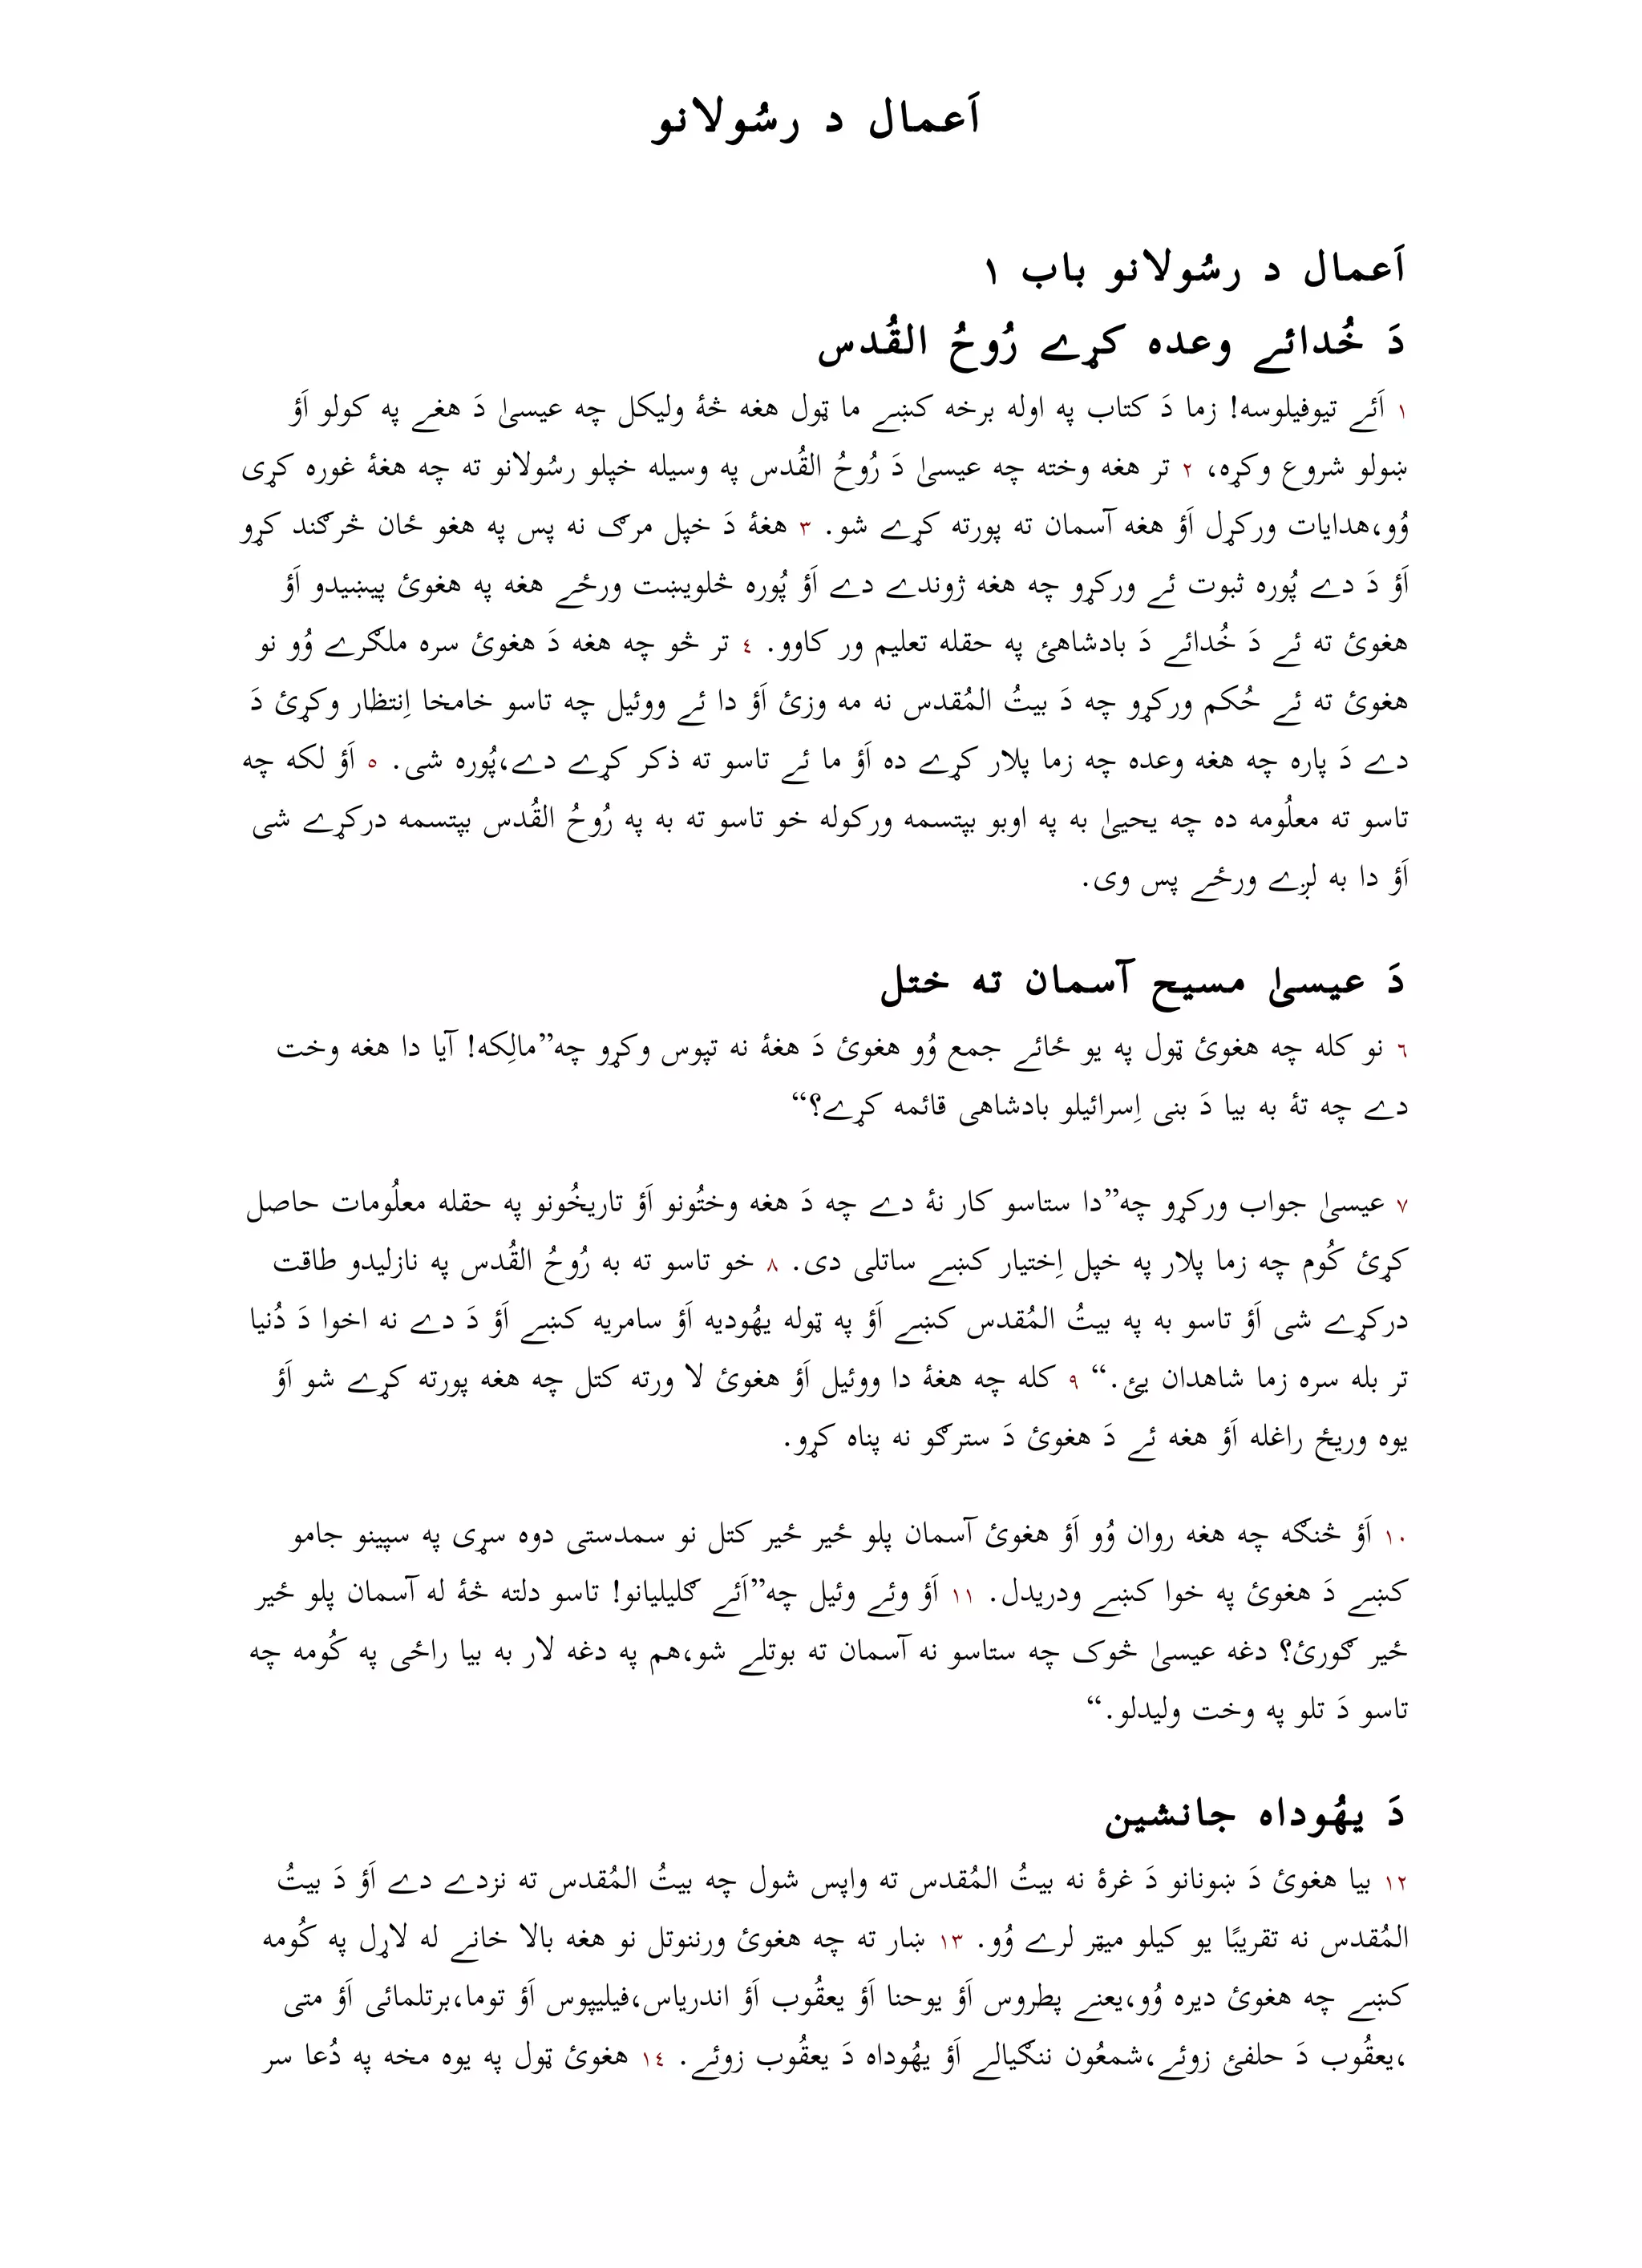 اَعمال د رسُولانو
اَعمال د رسُولانو باب ۱
دَ خُدائے وعده کړے رُوحُ القُدس
۱ اَئے تیوفیلوسه! زما دَ کتاب په اوله برخه کښے ما ټول هغه څۀ ولیکل چه عیسیٰ دَ هغے په کولو اَؤ
ښولو شروع وکړه، ۲ تر هغه وخته چه عیسیٰ دَ رُوحُ القُدس په وسیله خپلو رسُولانو ته چه هغۀ غوره کړی
وُو،هدایات ورکړل اَؤ هغه آسمان ته پورته کړے شو. ۳ هغۀ دَ خپل مرګ نه پس په هغو ځان څرګند کړو
اَؤ دَ دے پُوره ثبوت ئے ورکړو چه هغه ژوندے دے اَؤ پُوره څلویښت ورځے هغه په هغوئ پیښیدو اَؤ
هغوئ ته ئے دَ خُدائے دَ بادشاهئ په حقله تعلیم ور کاوو. ٤ تر څو چه هغه دَ هغوئ سره ملګرے وُو نو
هغوئ ته ئے حُکم ورکړو چه دَ بیتُ المُقدس نه مه وزئ اَؤ دا ئے ووئیل چه تاسو خامخا اِنتظار وکړئ دَ
دے دَ پاره چه هغه وعده چه زما پلار کړے ده اَؤ ما ئے تاسو ته ذکر کړے دے،پُوره شی. ٥ اَؤ لکه چه
تاسو ته معلُومه ده چه یحییٰ به په اوبو بپتسمه ورکوله خو تاسو ته به په رُوحُ القُدس بپتسمه درکړے شی
اَؤ دا به لږے ورځے پس وی.
دَ عیسیٰ مسیح آسمان ته ختل
٦ نو کله چه هغوئ ټول په یو ځائے جمع وُو هغوئ دَ هغۀ نه تپوس وکړو چه”مالِکه! آیا دا هغه وخت
دے چه تۀ به بیا دَ بنی اِسرائیلو بادشاهی قائمه کړے؟“
۷ عیسیٰ جواب ورکړو چه”دا ستاسو کار نۀ دے چه دَ هغه وختُونو اَؤ تاریخُونو په حقله معلُومات حاصل
کړئ کُوم چه زما پلار په خپل اِختیار کښے ساتلی دی. ۸ خو تاسو ته به رُوحُ القُدس په نازلیدو طاقت
درکړے شی اَؤ تاسو به په بیتُ المُقدس کښے اَؤ په ټوله یهُودیه اَؤ سامریه کښے اَؤ دَ دے نه اخوا دَ دُنیا
تر بله سره زما شاهدان یئ.“ ۹ کله چه هغۀ دا ووئیل اَؤ هغوئ لا ورته کتل چه هغه پورته کړے شو اَؤ
یوه وریځ راغله اَؤ هغه ئے دَ هغوئ دَ سترګو نه پناه کړو.
۱۰ اَؤ څنګه چه هغه روان وُو اَؤ هغوئ آسمان پلو ځیر ځیر کتل نو سمدستی دوه سړی په سپینو جامو
کښے دَ هغوئ په خوا کښے ودریدل. ۱۱ اَؤ وئے وئیل چه”اَئے ګلیلیانو! تاسو دلته څۀ له آسمان پلو ځیر
ځیر ګورئ؟ دغه عیسیٰ څوک چه ستاسو نه آسمان ته بوتلے شو،هم په دغه لار به بیا راځی په کُومه چه
تاسو دَ تلو په وخت ولیدلو.“
دَ یهُوداه جانشین
۱۲ بیا هغوئ دَ ښونانو دَ غرۀ نه بیتُ المُقدس ته واپس شول چه بیتُ المُقدس ته نزدے دے اَؤ دَ بیتُ
المُقدس نه تقریبًا یو کیلو میټر لرے وُو. ۱۳ ښار ته چه هغوئ ورننوتل نو هغه بالا خانے له لاړل په کُومه
کښے چه هغوئ دیره وُو،یعنے پطروس اَؤ یوحنا اَؤ یعقُوب اَؤ اندریاس،فیلیپوس اَؤ توما،برتلمائی اَؤ متی
،یعقُوب دَ حلفئ زوئے،شمعُون ننګیالے اَؤ یهُوداه دَ یعقُوب زوئے. ۱٤ هغوئ ټول په یوه مخه په دُعا سر